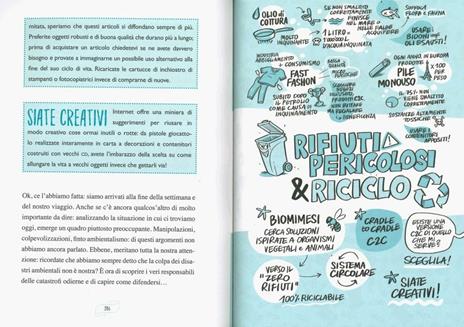 mitata, speriamo che questi articoli si diffondano sempre di più.
Preferite oggetti robusti e di buona qualità che durano più a lungo;
prima di acquistare un articolo chiedetevi se ne avete davvero
bisogno e provate a immaginare un possibile uso alternativo alla
fine del suo ciclo di vita. Ricaricate le cartucce di inchiostro di
stampanti o fotocopiatrici invece di comprarne di nuove.
SIATE CREATIVI
Internet offre una miniera di
suggerimenti per riutare in
modo creativo cose ormai inutili o rotte: da pistole giocatto-
lo realizzate interamente in carta a decorazioni e contenitori
costruiti con vecchi cd, avete l'imbarazzo della scelta su come
allungare la vita a vecchi oggetti invece che gettarli via!
Ok, ce l'abbiamo fatta: siamo arrivati alla fine della settimana e
del nostro viaggio. Anche se c'è ancora qualcos'altro di molto
importante da dire: analizzando la situazione in cui ci troviamo
oggi, emerge un quadro piuttosto preoccupante. Manipolazioni,
colpevolizzazioni, finto ambientalismo: di questi argomenti non
abbiamo ancora parlato. Ebbene, meritano tutta la nostra atten-
zione: ricordate che abbiamo sempre detto che la colpa dei disa-
stri ambientali non è nostra? È ora di scoprire i veri responsabili
delle catastrofi odierne e di capire come difendersi…
OLIO DI
COTTURA
MOLTO
INQUINANTE
SE NON SMALTITO
CORRETTAMENTE
FINISCE
NEL MARE
E NELLE FALDE
ACQUIFERE
1 LITRO =
D'ACQUA INQUINATA
SOFFOCA
FLORA E FAUNA
USARE I
BIDONI
OLI ESAUSTI!
INDUSTRIA
ABBIGLIAMENTO
+ CONSUMISMO
FAST
FASHION
SUBITO DOPO
IL PETROLIO
COME CAUSA DI
INQUINAMENTO
CAPI USATI,
PRODOTTI C2C
BENEFICENZA
OGNI ANNO, IN EUROPA
PILE
MONOUSO
PER
PESO
IL 75% NON
VIENE SMALTITO
CORRETTAMENTE
SOSTANZE ALTAMENTE
TOSSICHE
USARE I
CONTENITORI
APPOSITI!
RIFIUTI
PERICOLOSI
& RICICLO
BIOMIMESI
CERCA SOLUZIONI
ISPIRATE A ORGANISMI
VEGETALI E ANIMALI
CRADLE TO
CRADLE
C2C
ESISTE UNA
VERSIONE C2C
DI QUELLO
CHE MI
SERVE?
SCEGLILA!
VERSO IL
"ZERO
RIFIUTI"
SISTEMA
CIRCOLARE
100% RICICLABILE
SIATE
CREATIVI!